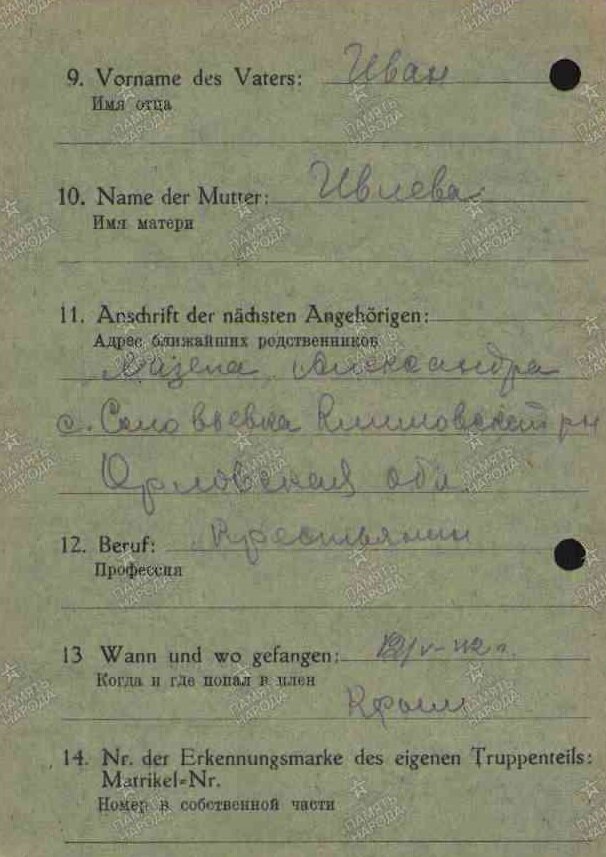 9. Vorname des Vaters: Иван
Имя отца
10. Name der Mutter: Ивлева
Имя матери
11. Anschrift der nächsten Angehörigen:
Адрес ближайших родственников
Мазепа Александра
с. Соловьевка Климовский рн
Орловская обл.
12. Beruf: Крестьянин
Профессия
13 Wann und wo gefangen: 12/V-42 г.
Когда и где попал в плен
Крым
14. Nr. der Erkennungsmarke des eigenen Truppenteils:
Matrikel-Nr.
Номер в собственной части
ПАМЯТЬ НАРОДА